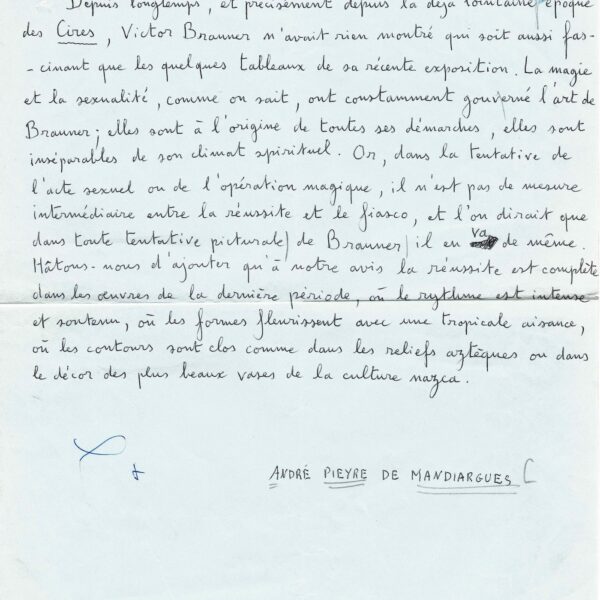 Depuis longtemps, et précisément depuis la déjà lointaine époque
des Cires, Victor Brauner n'avait rien montré qui soit aussi fas-
-cinant que les quelques tableaux de sa récente exposition. La magie
et la sexualité, comme on sait, ont constamment gouverné l'art de
Brauner ; elles sont à l'origine de toutes ses démarches, elles sont
inséparables de son climat spirituel. Or, dans la tentative de
l'acte sexuel ou de l'opération magique, il n'est pas de mesure
intermédiaire entre la réussite et le fiasco, et l'on dirait que
dans toute tentative picturale de Brauner il en va de même.
Hâtons-nous d'ajouter qu'à notre avis la réussite est complète
dans les œuvres de la dernière période, où le rythme est intense
et soutenu, où les formes fleurissent avec une tropicale aisance,
où les contours sont clos comme dans les reliefs aztèques ou dans
le décor des plus beaux vases de la culture nazca.
ANDRÉ PIEYRE DE MANDIARGUES